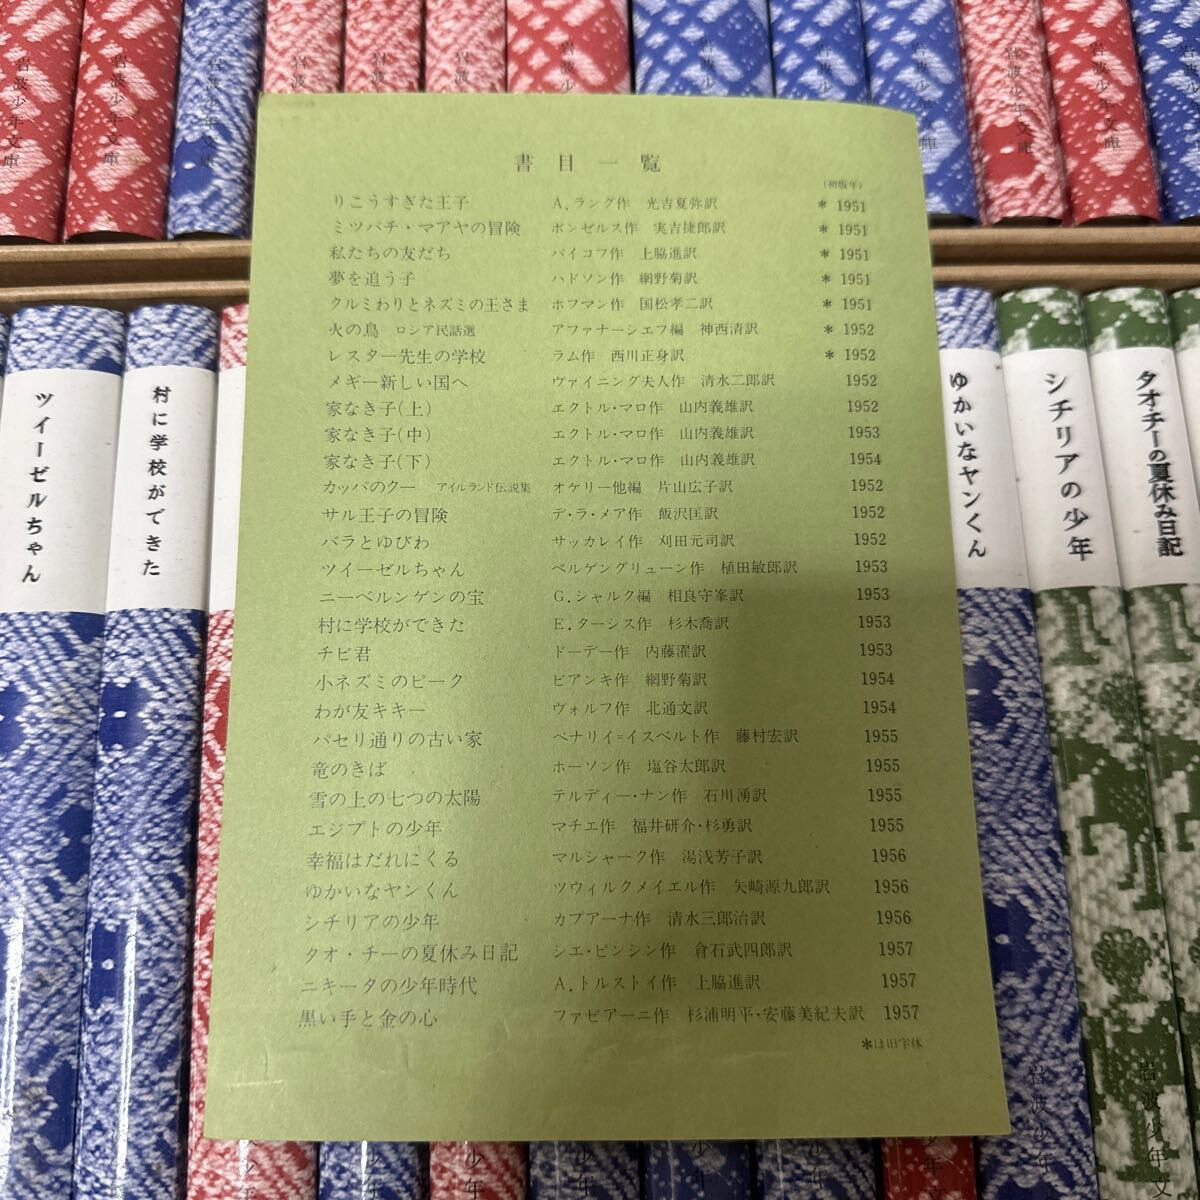 岩波少年文庫
岩波少年文庫
岩波少年文庫
岩波
岩波
岩波
岩波少
岩波少
岩波少
岩波少
文庫
岩波少年文庫
岩波少年文庫
岩波少年文庫
書目一覧
(初版年)
りこうすぎた王子 A.ラング作 光吉夏弥訳 * 1951
ミツバチ・マアヤの冒険 ボンゼルス作 実吉捷郎訳 * 1951
私たちの友だち バイコフ作 上脇進訳 * 1951
夢を追う子 ハドソン作 網野菊訳 * 1951
クルミわりとネズミの王さま ホフマン作 国松孝二訳 * 1951
火の鳥 ロシア民話選 アファナーシエフ編 神西清訳 * 1952
レスター先生の学校 ラム作 西川正身訳 * 1952
メギー新しい国へ ヴァイニング夫人作 清水二郎訳 1952
家なき子(上) エクトル・マロ作 山内義雄訳 1952
家なき子(中) エクトル・マロ作 山内義雄訳 1953
家なき子(下) エクトル・マロ作 山内義雄訳 1954
カッパのクー アイルランド伝説集 オケリー他編 片山広子訳 1952
サル王子の冒険 デ・ラ・メア作 飯沢匡訳 1952
バラとゆびわ サッカレイ作 刈田元司訳 1952
ツイーゼルちゃん ベルゲングリューン作 植田敏郎訳 1953
ニーベルンゲンの宝 G.シャルク編 相良守峯訳 1953
村に学校ができた E.ターシス作 杉木喬訳 1953
チビ君 ドーデー作 内藤濯訳 1953
小ネズミのピーク ビアンキ作 網野菊訳 1954
わが友キキー ヴォルフ作 北通文訳 1954
パセリ通りの古い家 ベナリイ=イスベルト作 藤村宏訳 1955
竜のきば ホーソン作 塩谷太郎訳 1955
雪の上の七つの太陽 テルディー・ナン作 石川湧訳 1955
エジプトの少年 マチエ作 福井研介・杉勇訳 1955
幸福はだれにくる マルシャーク作 湯浅芳子訳 1956
ゆかいなヤンくん ツウィルクメイエル作 矢崎源九郎訳 1956
シチリアの少年 カプアーナ作 清水三郎治訳 1956
タオ・チーの夏休み日記 シエ・ピンシン作 倉石武四郎訳 1957
ニキータの少年時代 A.トルストイ作 上脇進訳 1957
黒い手と金の心 ファビアーニ作 杉浦明平・安藤美紀夫訳 1957
*は旧字体
ツイーゼルちゃん
村に学校ができた
ゆかいなヤンくん
シチリアの少年
タオ・チーの夏休み日記
岩波少年
岩波少年文